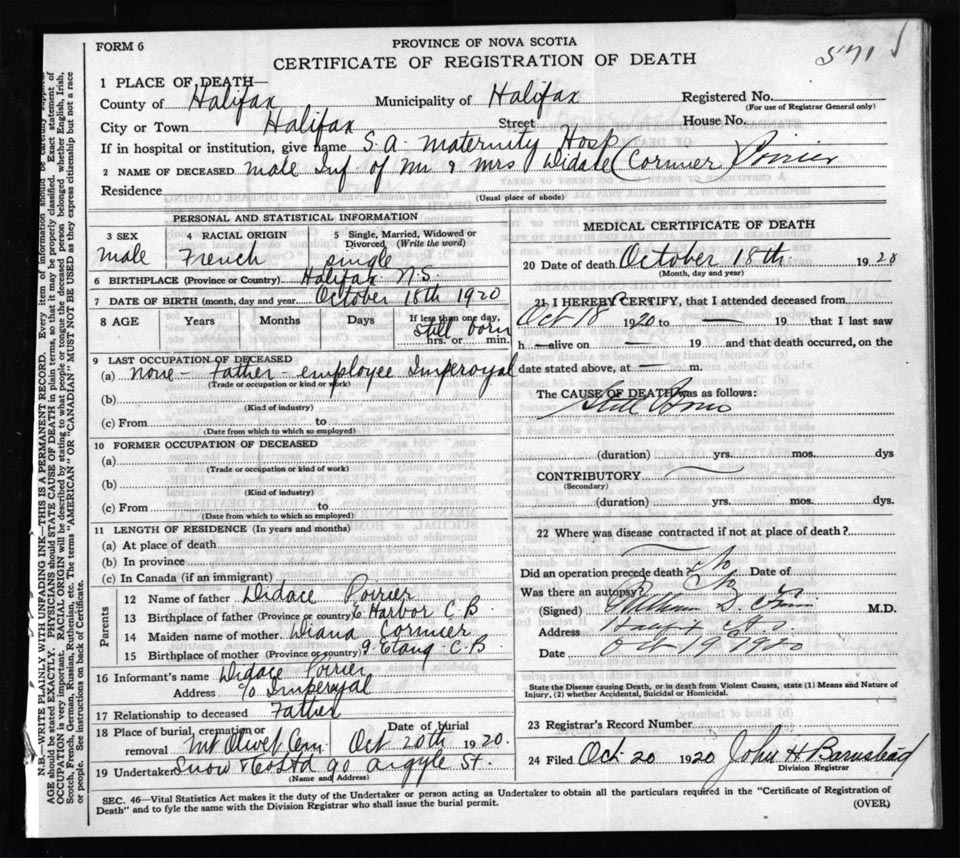 FORM 6
PROVINCE OF NOVA SCOTIA
CERTIFICATE OF REGISTRATION OF DEATH
571
1 PLACE OF DEATH—
County of Halifax Municipality of Halifax Registered No.
(For use of Registrar General only)
City or Town Halifax Street House No.
If in hospital or institution, give name S.A. Maternity Hosp
2 NAME OF DECEASED Male Inf. of Mr & Mrs Didace (Cormier) Poirier
Residence
(Usual place of abode)
PERSONAL AND STATISTICAL INFORMATION
3 SEX 4 RACIAL ORIGIN 5 Single, Married, Widowed or Divorced (Write the word)
Male French single
6 BIRTHPLACE (Province or Country) Halifax N.S.
7 DATE OF BIRTH (month, day and year) October 18th 1920
8 AGE Years Months Days If less than one day,
Still born
hrs. or min.
9 LAST OCCUPATION OF DECEASED
(a) None - Father - employee Imperoyal
(Trade or occupation or kind of work)
(b)
(Kind of industry)
(c) From to
(Date from which to which so employed)
10 FORMER OCCUPATION OF DECEASED
(a)
(Trade or occupation or kind of work)
(b)
(Kind of industry)
(c) From to
(Date from which to which so employed)
11 LENGTH OF RESIDENCE (In years and months)
(a) At place of death
(b) In province
(c) In Canada (if an immigrant)
Parents
12 Name of father Didace Poirier
13 Birthplace of father (Province or country) E. Harbor C.B
14 Maiden name of mother Diana Cormier
15 Birthplace of mother (Province or country) g. Etang C.B
16 Informant's name Didace Poirier
Address c/o Imperoyal
17 Relationship to deceased Father
18 Place of burial, cremation or removal Mt Olivet Cem Date of burial Oct 20th 1920
19 Undertaker Snow & Co Ltd 90 Argyle St.
(Name and Address)
MEDICAL CERTIFICATE OF DEATH
20 Date of death October 18th 1920
(Month, day and year)
21 I HEREBY CERTIFY, that I attended deceased from
Oct 18 1920 to — 19 that I last saw
h — alive on — 19 and that death occurred, on the
date stated above, at — m.
The CAUSE OF DEATH was as follows:
Still Born
(duration) yrs. mos. dys
CONTRIBUTORY
(Secondary)
(duration) yrs. mos. dys.
22 Where was disease contracted if not at place of death?
Did an operation precede death? No Date of
Was there an autopsy? No
(Signed) William D. M.D.
Address Halifax N.S.
Date Oct 19 1920
State the Disease causing Death, or in death from Violent Causes, state (1) Means and Nature of
Injury, (2) whether Accidental, Suicidal or Homicidal.
23 Registrar's Record Number
24 Filed Oct 20 1920 John H Barnstead
Division Registrar
SEC. 46—Vital Statistics Act makes it the duty of the Undertaker or person acting as Undertaker to obtain all the particulars required in the "Certificate of Registration of
Death" and to fyle the same with the Division Registrar who shall issue the burial permit. (OVER)
N.B.—WRITE PLAINLY WITH UNFADING INK—THIS IS A PERMANENT RECORD. Every item of information should be carefully supplied
AGE should be stated EXACTLY. PHYSICIANS should STATE CAUSE OF DEATH in plain terms, so that it may be properly classified. Exact statement of
OCCUPATION is very important. RACIAL ORIGIN will be described by stating to what people or tongue the deceased person belonged whether English, Irish,
Scotch, French, German, Russian, Ruthenian, etc. The terms "AMERICAN" OR "CANADIAN" MUST NOT BE USED as they express citizenship but not a race
or people. See instructions on back of Certificate.